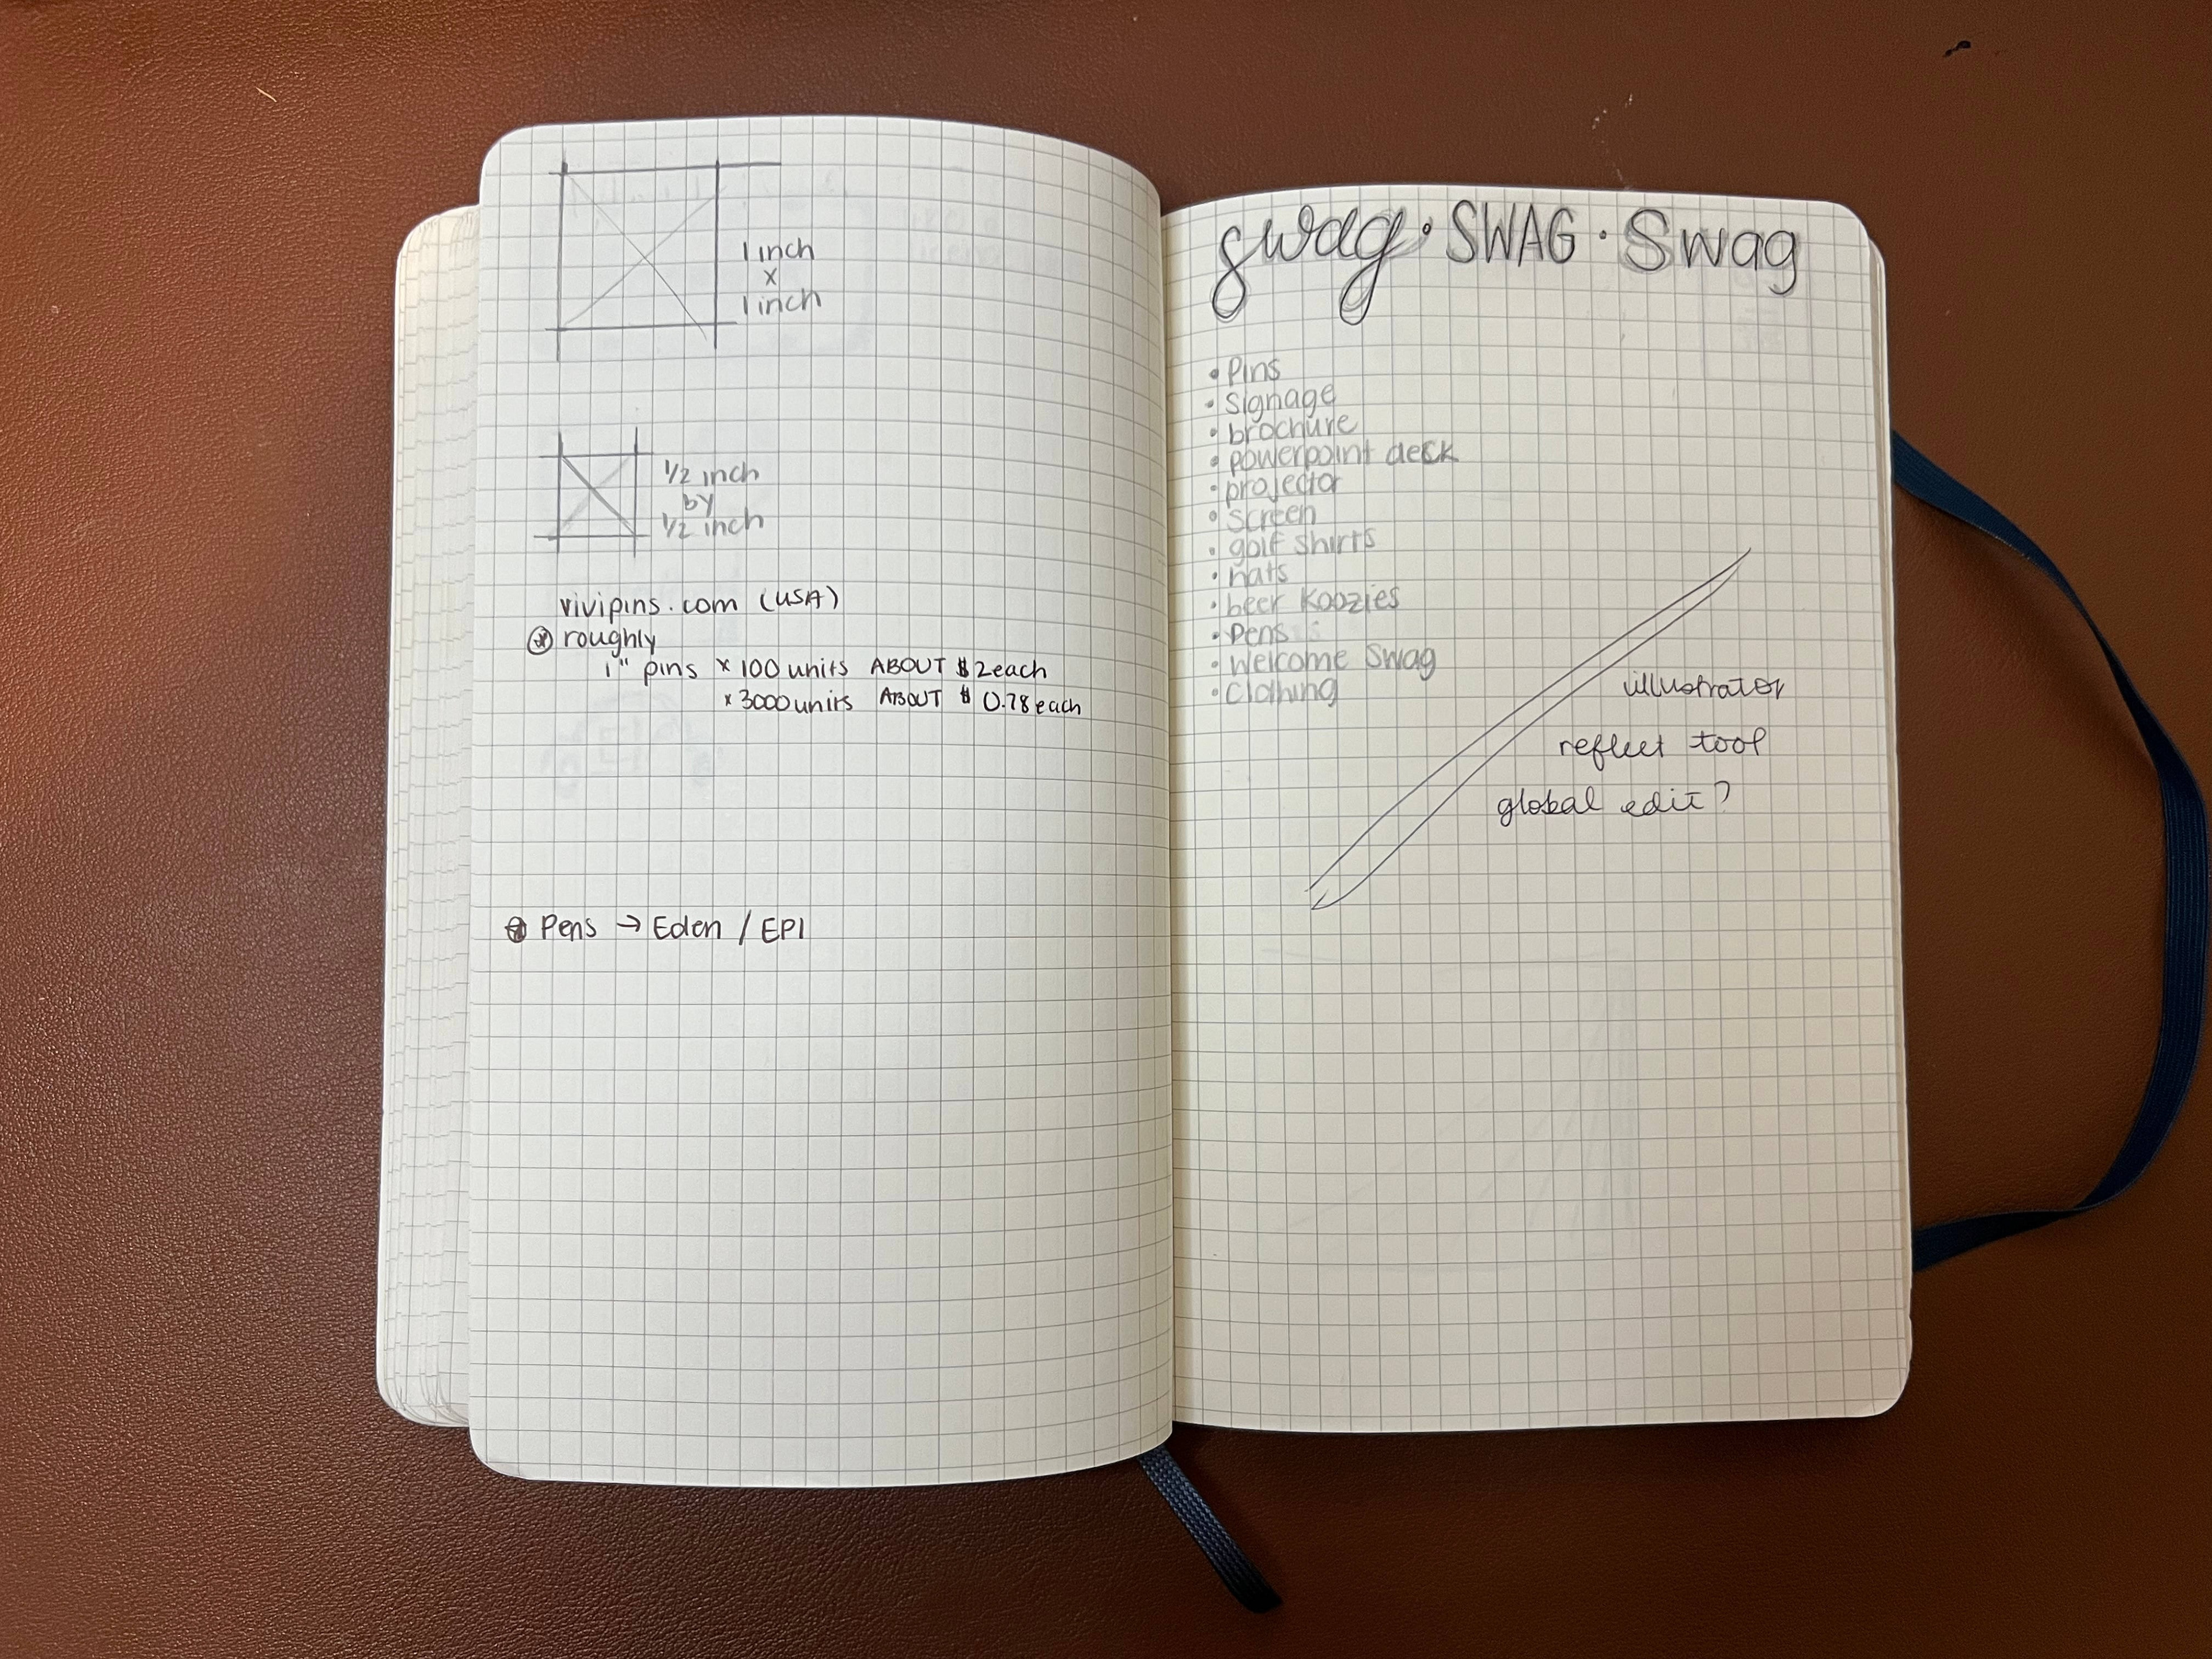 1 inch
x
1 inch
1/2 inch
by
1/2 inch
vivipins.com (USA)
roughly
1" pins x 100 units ABOUT $2 each
x 3000 units ABOUT $0.78 each
Pens → Eden / EPI
swag · SWAG · Swag
• Pins
• Signage
• brochure
• powerpoint deck
• projector
• screen
• golf shirts
• hats
• beer koozies
• Pens
• Welcome Swag
• Clothing
illustrator
reflect tool
global edit?